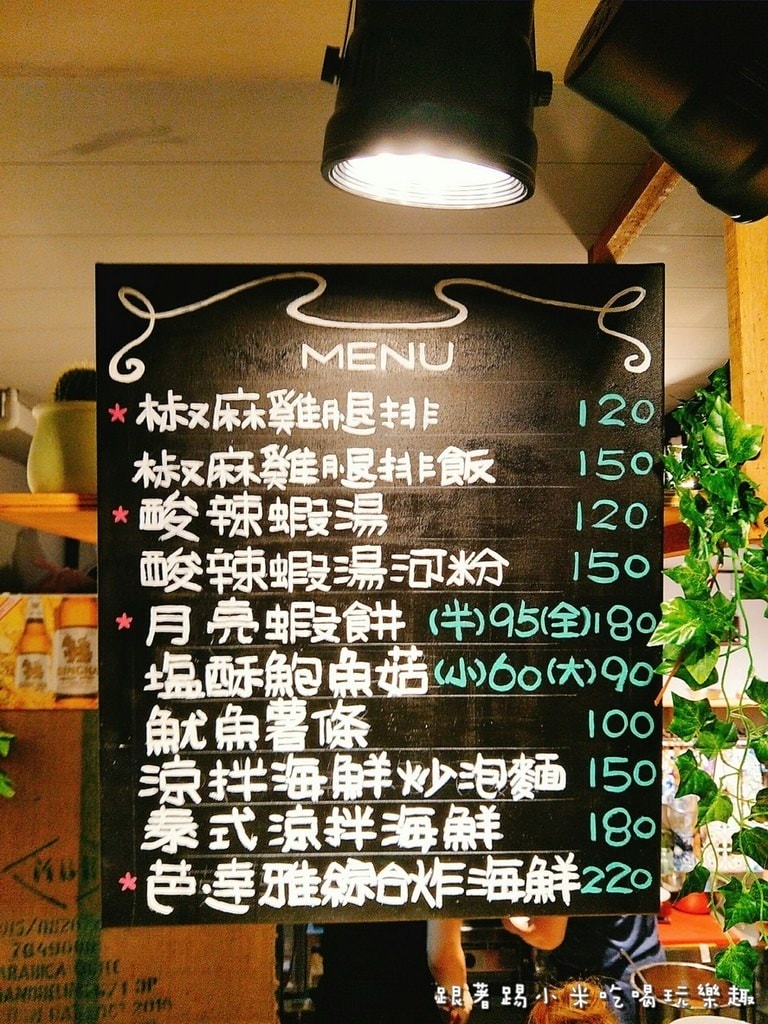 MENU
*椒麻雞腿排 120
椒麻雞腿排飯 150
*酸辣蝦湯 120
酸辣蝦湯河粉 150
*月亮蝦餅 (半)95(全)180
塩酥鮑魚菇(小)60(大)90
魷魚薯條 100
涼拌海鮮炒泡麵 150
泰式涼拌海鮮 180
*芭達雅綜合炸海鮮220
SINGHA
ARABICA
2016
跟著踢小米吃喝玩樂趣